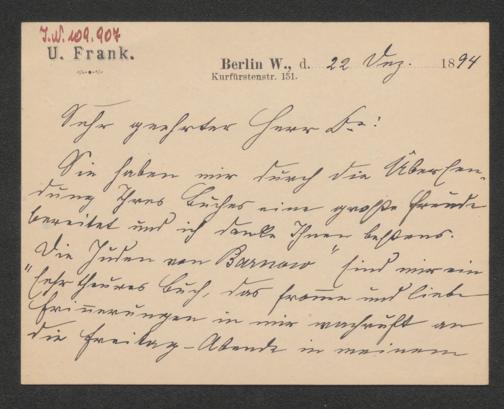 I.N. 109.907
U. Frank.
Berlin W., d. 22 Dez. 1894
Kurfürstenstr. 151.
Sehr geehrter Herr Dr.!
Sie haben mir durch die Übersen-
dung Ihres Buches eine große Freude
bereitet und ich danke Ihnen bestens.
"Die Juden von Barnow" sind mir ein
sehr theures Buch, das fromme und liebe
Erinnerungen in mir wachruft an
die Freitag-Abende in meinem